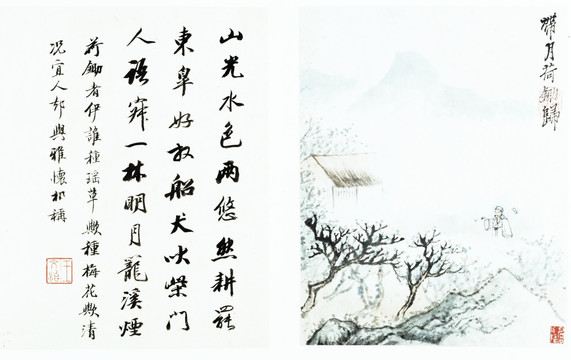 帶月荷鋤歸
山光水色兩悠然耕罷
東皋好放船犬吠柴門
人語寂一林明月籠溪煙
荷鋤者伊誰種瑤草歟種梅花歟清
況宜人却與雅懷相稱